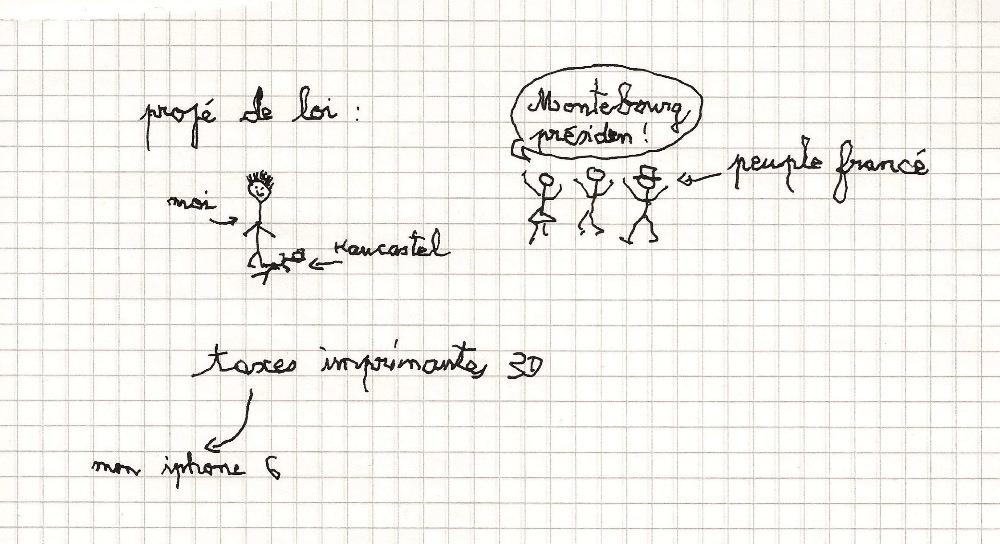 projé de loi :
Montebourg
présiden !
peuple francé
moi
Kancastel
taxes imprimantes 3D
mon iphone 6